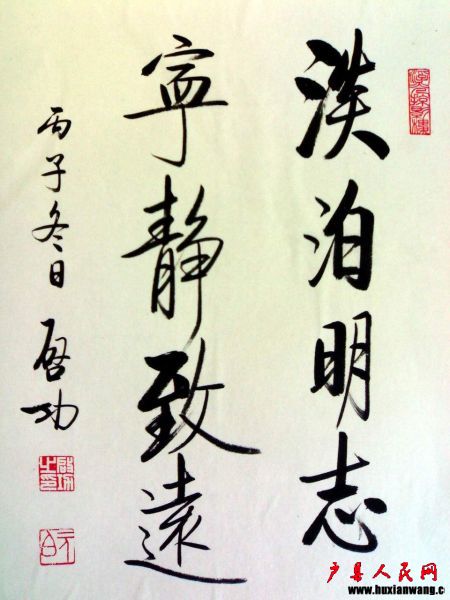 淡泊明志
寧靜致遠
丙子冬日 啓功
户县人民网
www.huxianwang.c